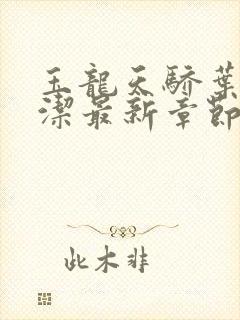 玉龍天驕葉
潔最新章節
此木非